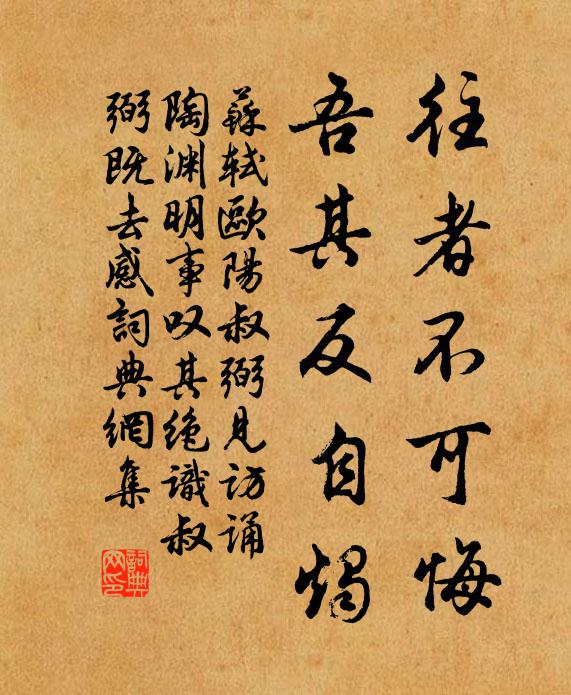 往者不可悔
吾其反自燭
蘇軾歐陽叔弼見訪誦
陶渊明事叹其绝識叔
弼既去感詞典網集
詞典网印